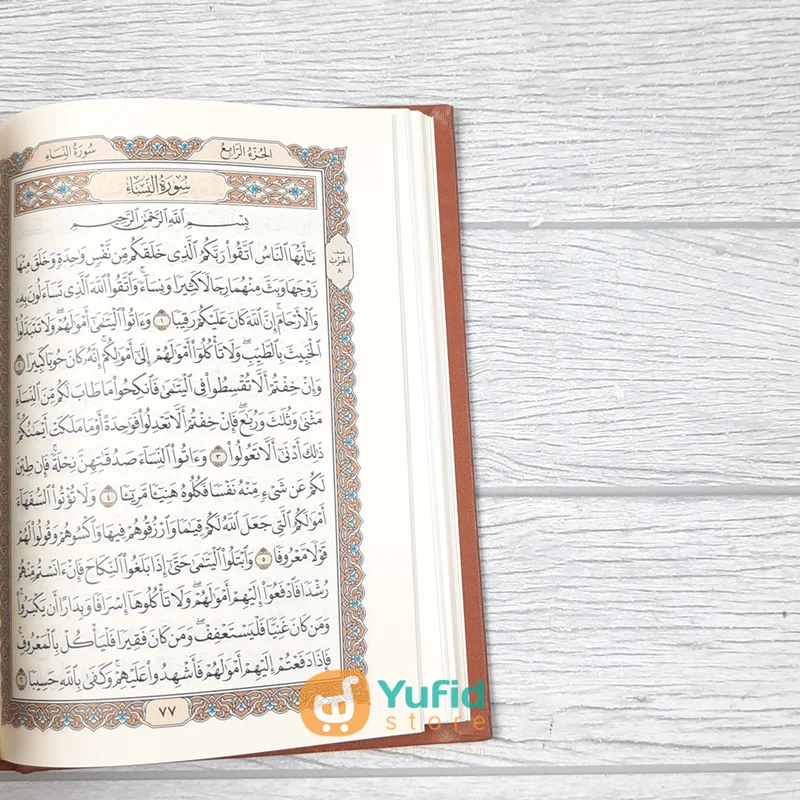 سُورَةُ النِّسَاءِ
الجُزْءُ الرَّابِعُ
سُورَةُ النِّسَاءِ
بِسْمِ ٱللَّهِ ٱلرَّحْمَٰنِ ٱلرَّحِيمِ
يَٰٓأَيُّهَا ٱلنَّاسُ ٱتَّقُوا۟ رَبَّكُمُ ٱلَّذِى خَلَقَكُم مِّن نَّفْسٍ وَٰحِدَةٍ وَخَلَقَ مِنْهَا
زَوْجَهَا وَبَثَّ مِنْهُمَا رِجَالًا كَثِيرًا وَنِسَآءً ۚ وَٱتَّقُوا۟ ٱللَّهَ ٱلَّذِى تَسَآءَلُونَ بِهِۦ
وَٱلْأَرْحَامَ ۚ إِنَّ ٱللَّهَ كَانَ عَلَيْكُمْ رَقِيبًا ١ وَءَاتُوا۟ ٱلْيَتَٰمَىٰٓ أَمْوَٰلَهُمْ ۖ وَلَا تَتَبَدَّلُوا۟
ٱلْخَبِيثَ بِٱلطَّيِّبِ ۖ وَلَا تَأْكُلُوٓا۟ أَمْوَٰلَهُمْ إِلَىٰٓ أَمْوَٰلِكُمْ ۚ إِنَّهُۥ كَانَ حُوبًا كَبِيرًا ٢
وَإِنْ خِفْتُمْ أَلَّا تُقْسِطُوا۟ فِى ٱلْيَتَٰمَىٰ فَٱنكِحُوا۟ مَا طَابَ لَكُم مِّنَ ٱلنِّسَآءِ
مَثْنَىٰ وَثُلَٰثَ وَرُبَٰعَ ۖ فَإِنْ خِفْتُمْ أَلَّا تَعْدِلُوا۟ فَوَٰحِدَةً أَوْ مَا مَلَكَتْ أَيْمَٰنُكُمْ ۚ
ذَٰلِكَ أَدْنَىٰٓ أَلَّا تَعُولُوا۟ ٣ وَءَاتُوا۟ ٱلنِّسَآءَ صَدُقَٰتِهِنَّ نِحْلَةً ۚ فَإِن طِبْنَ
لَكُمْ عَن شَىْءٍ مِّنْهُ نَفْسًا فَكُلُوهُ هَنِيٓـًٔا مَّرِيٓـًٔا ٤ وَلَا تُؤْتُوا۟ ٱلسُّفَهَآءَ
أَمْوَٰلَكُمُ ٱلَّتِى جَعَلَ ٱللَّهُ لَكُمْ قِيَٰمًا وَٱرْزُقُوهُمْ فِيهَا وَٱكْسُوهُمْ وَقُولُوا۟ لَهُمْ
قَوْلًا مَّعْرُوفًا ٥ وَٱبْتَلُوا۟ ٱلْيَتَٰمَىٰ حَتَّىٰٓ إِذَا بَلَغُوا۟ ٱلنِّكَاحَ فَإِنْ ءَانَسْتُم مِّنْهُمْ
رُشْدًا فَٱدْفَعُوٓا۟ إِلَيْهِمْ أَمْوَٰلَهُمْ ۖ وَلَا تَأْكُلُوهَآ إِسْرَافًا وَبِدَارًا أَن يَكْبَرُوا۟ ۚ
وَمَن كَانَ غَنِيًّا فَلْيَسْتَعْفِفْ ۖ وَمَن كَانَ فَقِيرًا فَلْيَأْكُلْ بِٱلْمَعْرُوفِ ۚ
فَإِذَا دَفَعْتُمْ إِلَيْهِمْ أَمْوَٰلَهُمْ فَأَشْهِدُوا۟ عَلَيْهِمْ ۚ وَكَفَىٰ بِٱللَّهِ حَسِيبًا ٦
نصف
الحزب
٨
٧٧
Yufid
store